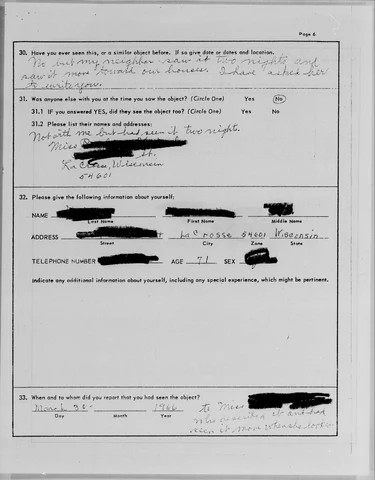 Page 6
30. Have you ever seen this, or a similar object before. If so give date or dates and location.
No but my neighbor saw it two nights and
saw it more toward our houses. I have asked her
to write you.
31. Was anyone else with you at the time you saw the object? (Circle One) Yes No
31.1 IF you answered YES, did they see the object too? (Circle One) Yes No
31.2 Please list their names and addresses:
Not with me but had seen it two nights.
Miss
St.
La Crosse, Wisconsin
54601
32. Please give the following information about yourself:
NAME
Last Name First Name Middle Name
ADDRESS La Crosse 54601 Wisconsin
Street City Zone State
TELEPHONE NUMBER AGE 71 SEX
Indicate any additional information about yourself, including any special experience, which might be pertinent.
33. When and to whom did you report that you had seen the object?
March 30- 1966 to Miss
Day Month Year
who described it and had
seen it more when she looked